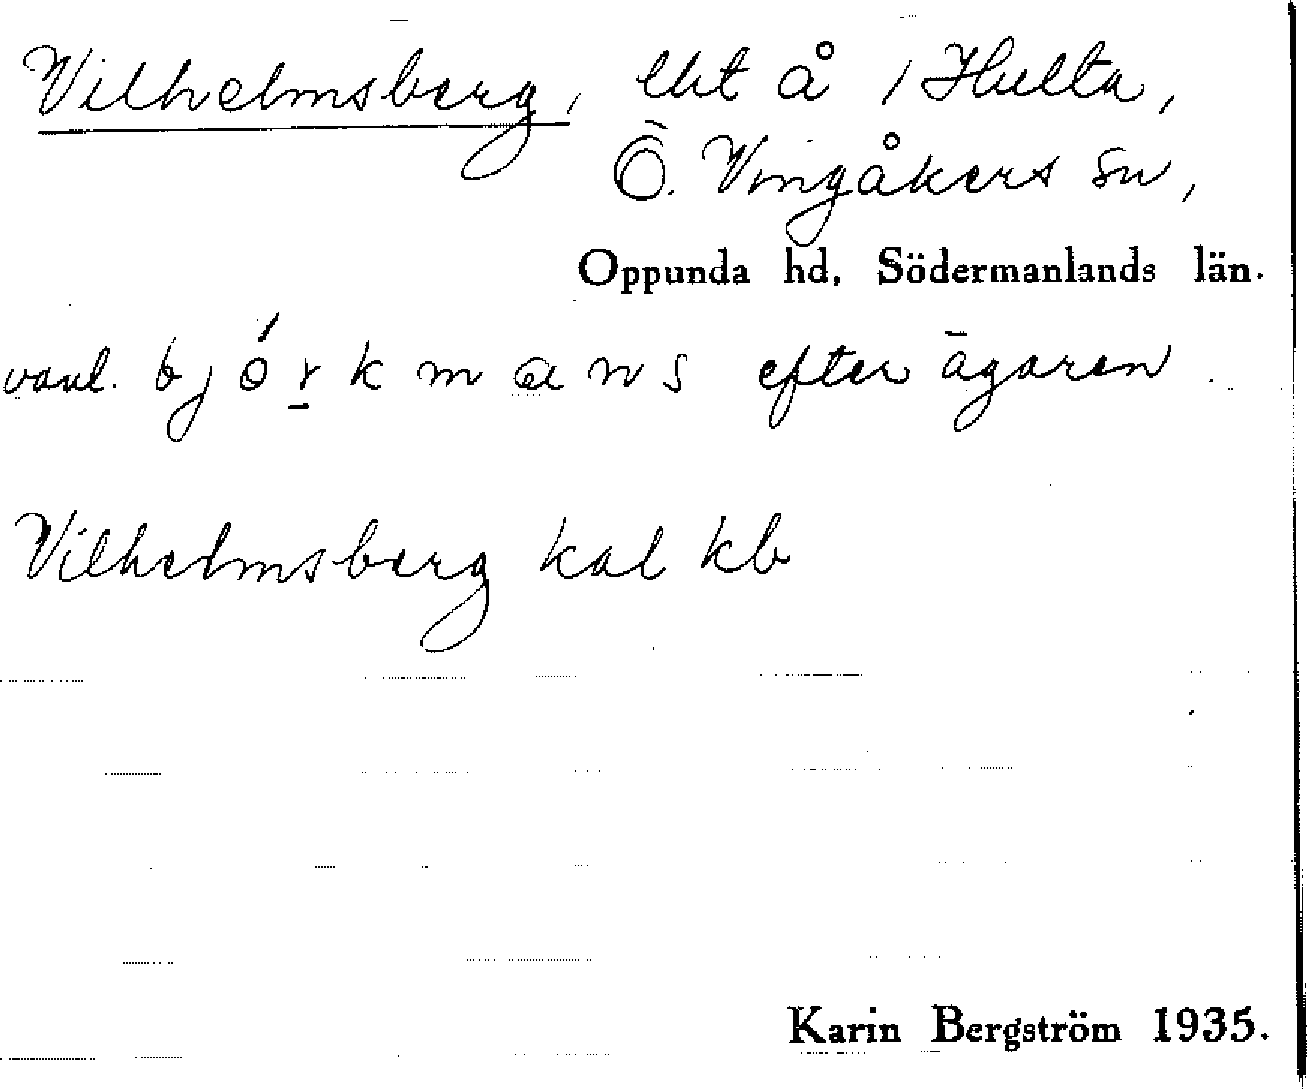 Vilhelmsberg, lht å 1 Hulta,
Ö. Vingåkers sn,
Oppunda hd, Södermanlands län.
vanl. bjórkmans efter ägaren.
Vilhelmsberg kal kb
Karin Bergström 1935.